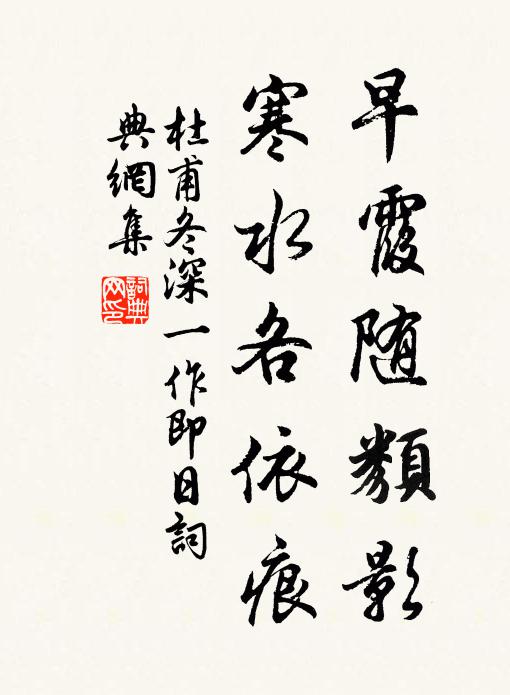 早霞随類影
寒水各依痕
杜甫冬深一作即日詞
典網集
詞典
网印